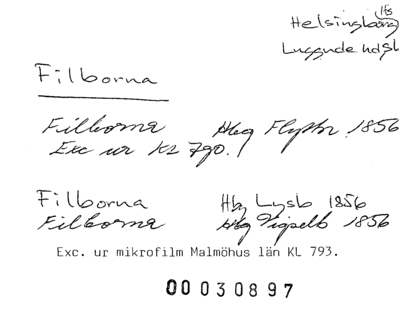 Helsingborg lfs
Luggude hdskt
Filborna
Filborna Hbg Flyttn. 1856
Exc ur KL 790.
Filborna Hbg Lysb 1856
Filborna Hbg Vigselb 1856
Exc. ur mikrofilm Malmöhus län KL 793.
00030897